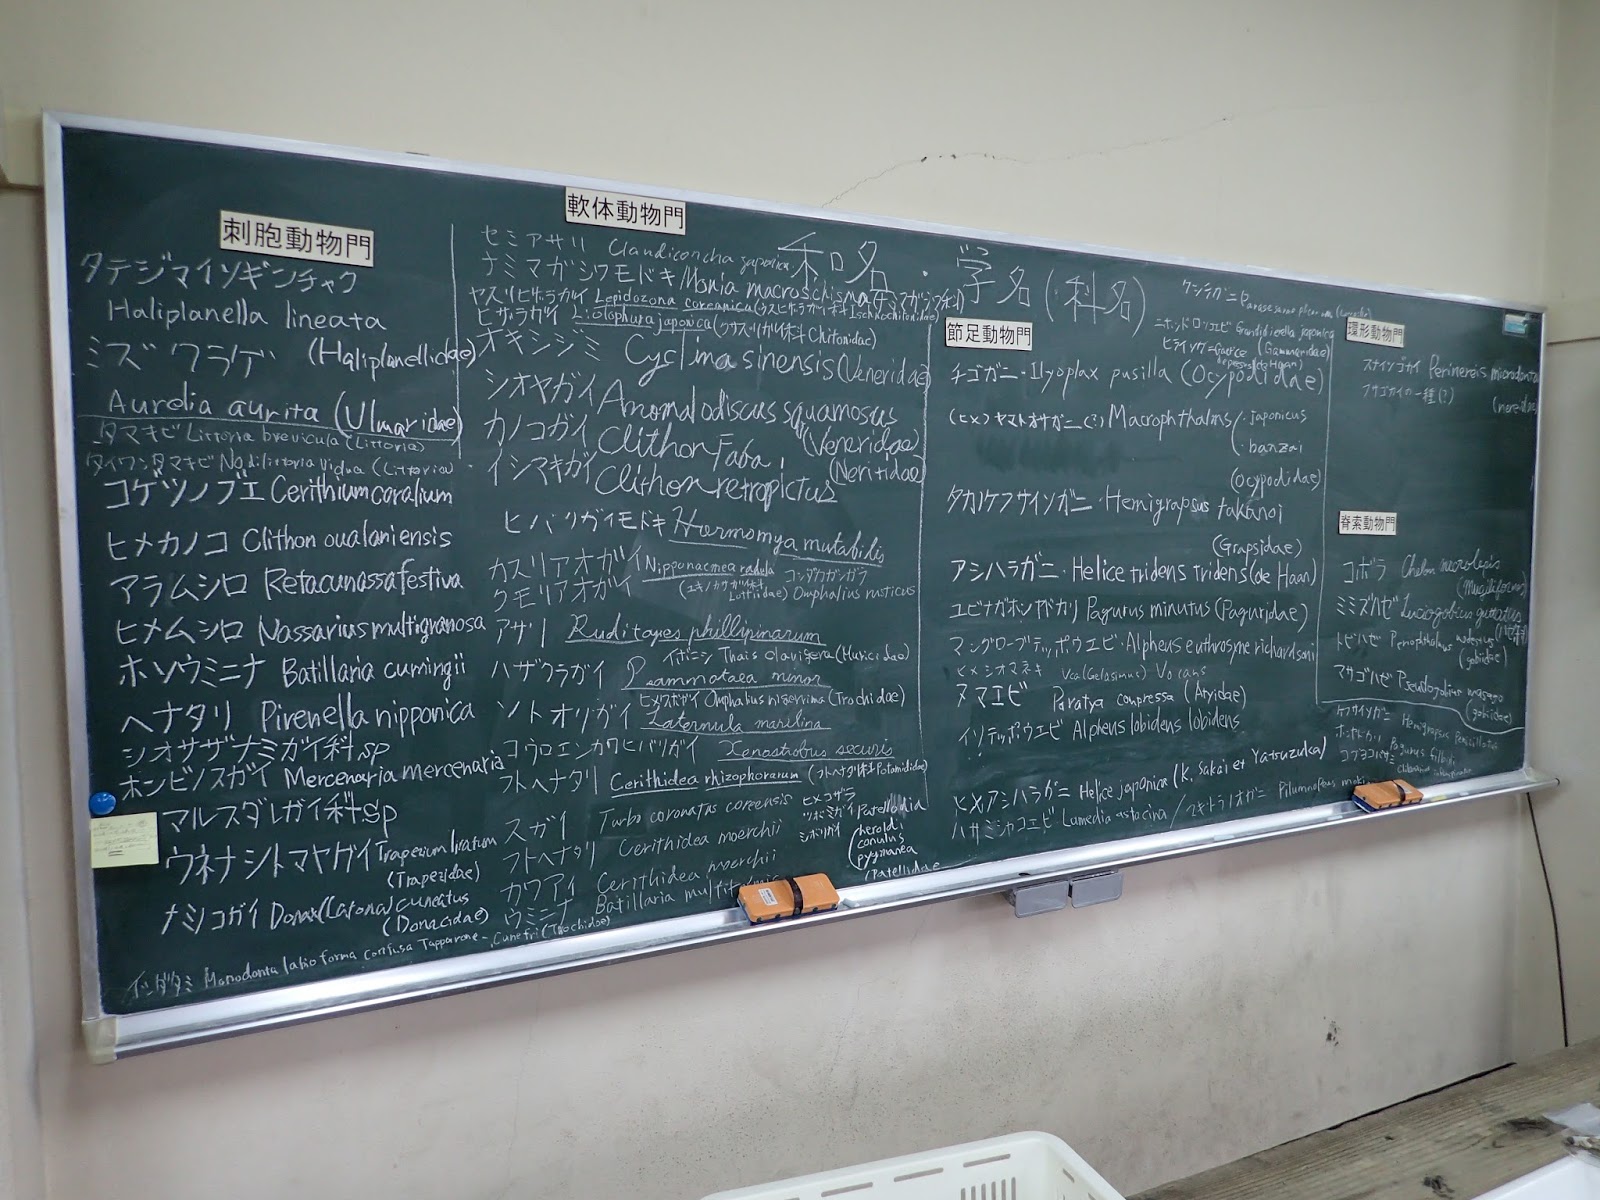 刺胞動物門
タテジマイソギンチャク
Haliplanella lineata
ミズクラゲ (Haliplanellidae)
Aurelia aurita (Ulmaridae)
タマキビ Littoria brevicula (Littoria)
タイワンタマキビ Nodilittoria vidua (Littoria)
コゲツノブエ Cerithium coralium
ヒメカノコ Clithon oualaniensis
アラムシロ Retacunassa festiva
ヒメムシロ Nassarius multigranosa
ホソウミニナ Batillaria cumingii
ヘナタリ Pirenella nipponica
シオサザナミガイ科 sp
ホンビノスガイ Mercenaria mercenaria
マルスダレガイ科 sp
ウネナシトマヤガイ Trapezium liratum
(Trapezidae)
ナミノコガイ Donax (Latona) cuneatus
(Donacidae)
イシダタミ Monodonta labio forma confusa Tapparone-Canefri (Trochidae)
軟体動物門
和名・学名(・科名)
セミアサリ Claudiconcha japonica
ナミマガシワモドキ Monia macroschisma (ナミマガシワ科)
ヤスリヒザラガイ Lepidozona coreanica
ヒザラガイ Liolophura japonica (クサズリガイ科 Chitonidae)
オキシジミ Cyclina sinensis (Veneridae)
シオヤガイ Anomalodiscus squamosus
(Veneridae)
カノコガイ Clithon Faba
(Neritidae)
イシマキガイ Clithon retropictus
ヒバリガイモドキ Hormomya mutabilis
カスリアオガイ Nipponacmea radula
クモリアオガイ
コシダカガンガラ
Omphalius rusticus
アサリ Ruditapes phillipinarum
イボニシ Thais clavigera (Muricidae)
ハザクラガイ Psammotaea minor
ヒメクボガイ Omphalius nigerrima (Trochidae)
ソトオリガイ Laternula marilina
コウロエンカワヒバリガイ Xenostrobus securis
フトヘナタリ Cerithidea rhizophorarum (フトヘナタリ科 Potamididae)
スガイ Turbo coronatus coreensis
フトヘナタリ Cerithidea moerchii
カワアイ Cerithidea moerchii
ウミニナ Batillaria
ヒメコザラ
ツボミガイ Patelloida
シボリガイ
heroldi
conulus
pygmaea
(Patellidae
節足動物門
ニホンドロソコエビ Grandidierella japonica
(Gammaridae)
チゴガニ・Ilyoplax pusilla (Ocypodidae)
(ヒメ)ヤマトオサガニ(?) Macrophthalms
・japonicus
・banzai
(Ocypodidae)
タカノケフサイソガニ・Hemigrapsus takanoi
(Grapsidae)
アシハラガニ・Helice tridens tridens (de Haan)
ユビナガホンヤドカリ Pagurus minutus (Paguridae)
マングローブテッポウエビ・Alpheus euthrosyne richardsoni
ヒメシオマネキ Uca (Gelasimus) Vocans
ヌマエビ Paratya compressa (Atyidae)
イソテッポウエビ Alpheus lobidens lobidens
ヒメアシハラガニ Helice japonica (K. Sakai et Yatsuzuka)
ハサミシャコエビ Laomedia astacina
環形動物門
スナイソゴカイ Perinereis
フサゴカイの一種(?)
脊索動物門
コボラ Chelon
ミミズハゼ Luciogobius guttatus
トビハゼ Periophthalmus modestus
(gobiidae)
マサゴハゼ Pseudogobius masago
(gobiidae)
ケフサイソガニ Hemigrapsus penicillatus
ホンヤドカリ Pagurus filholi